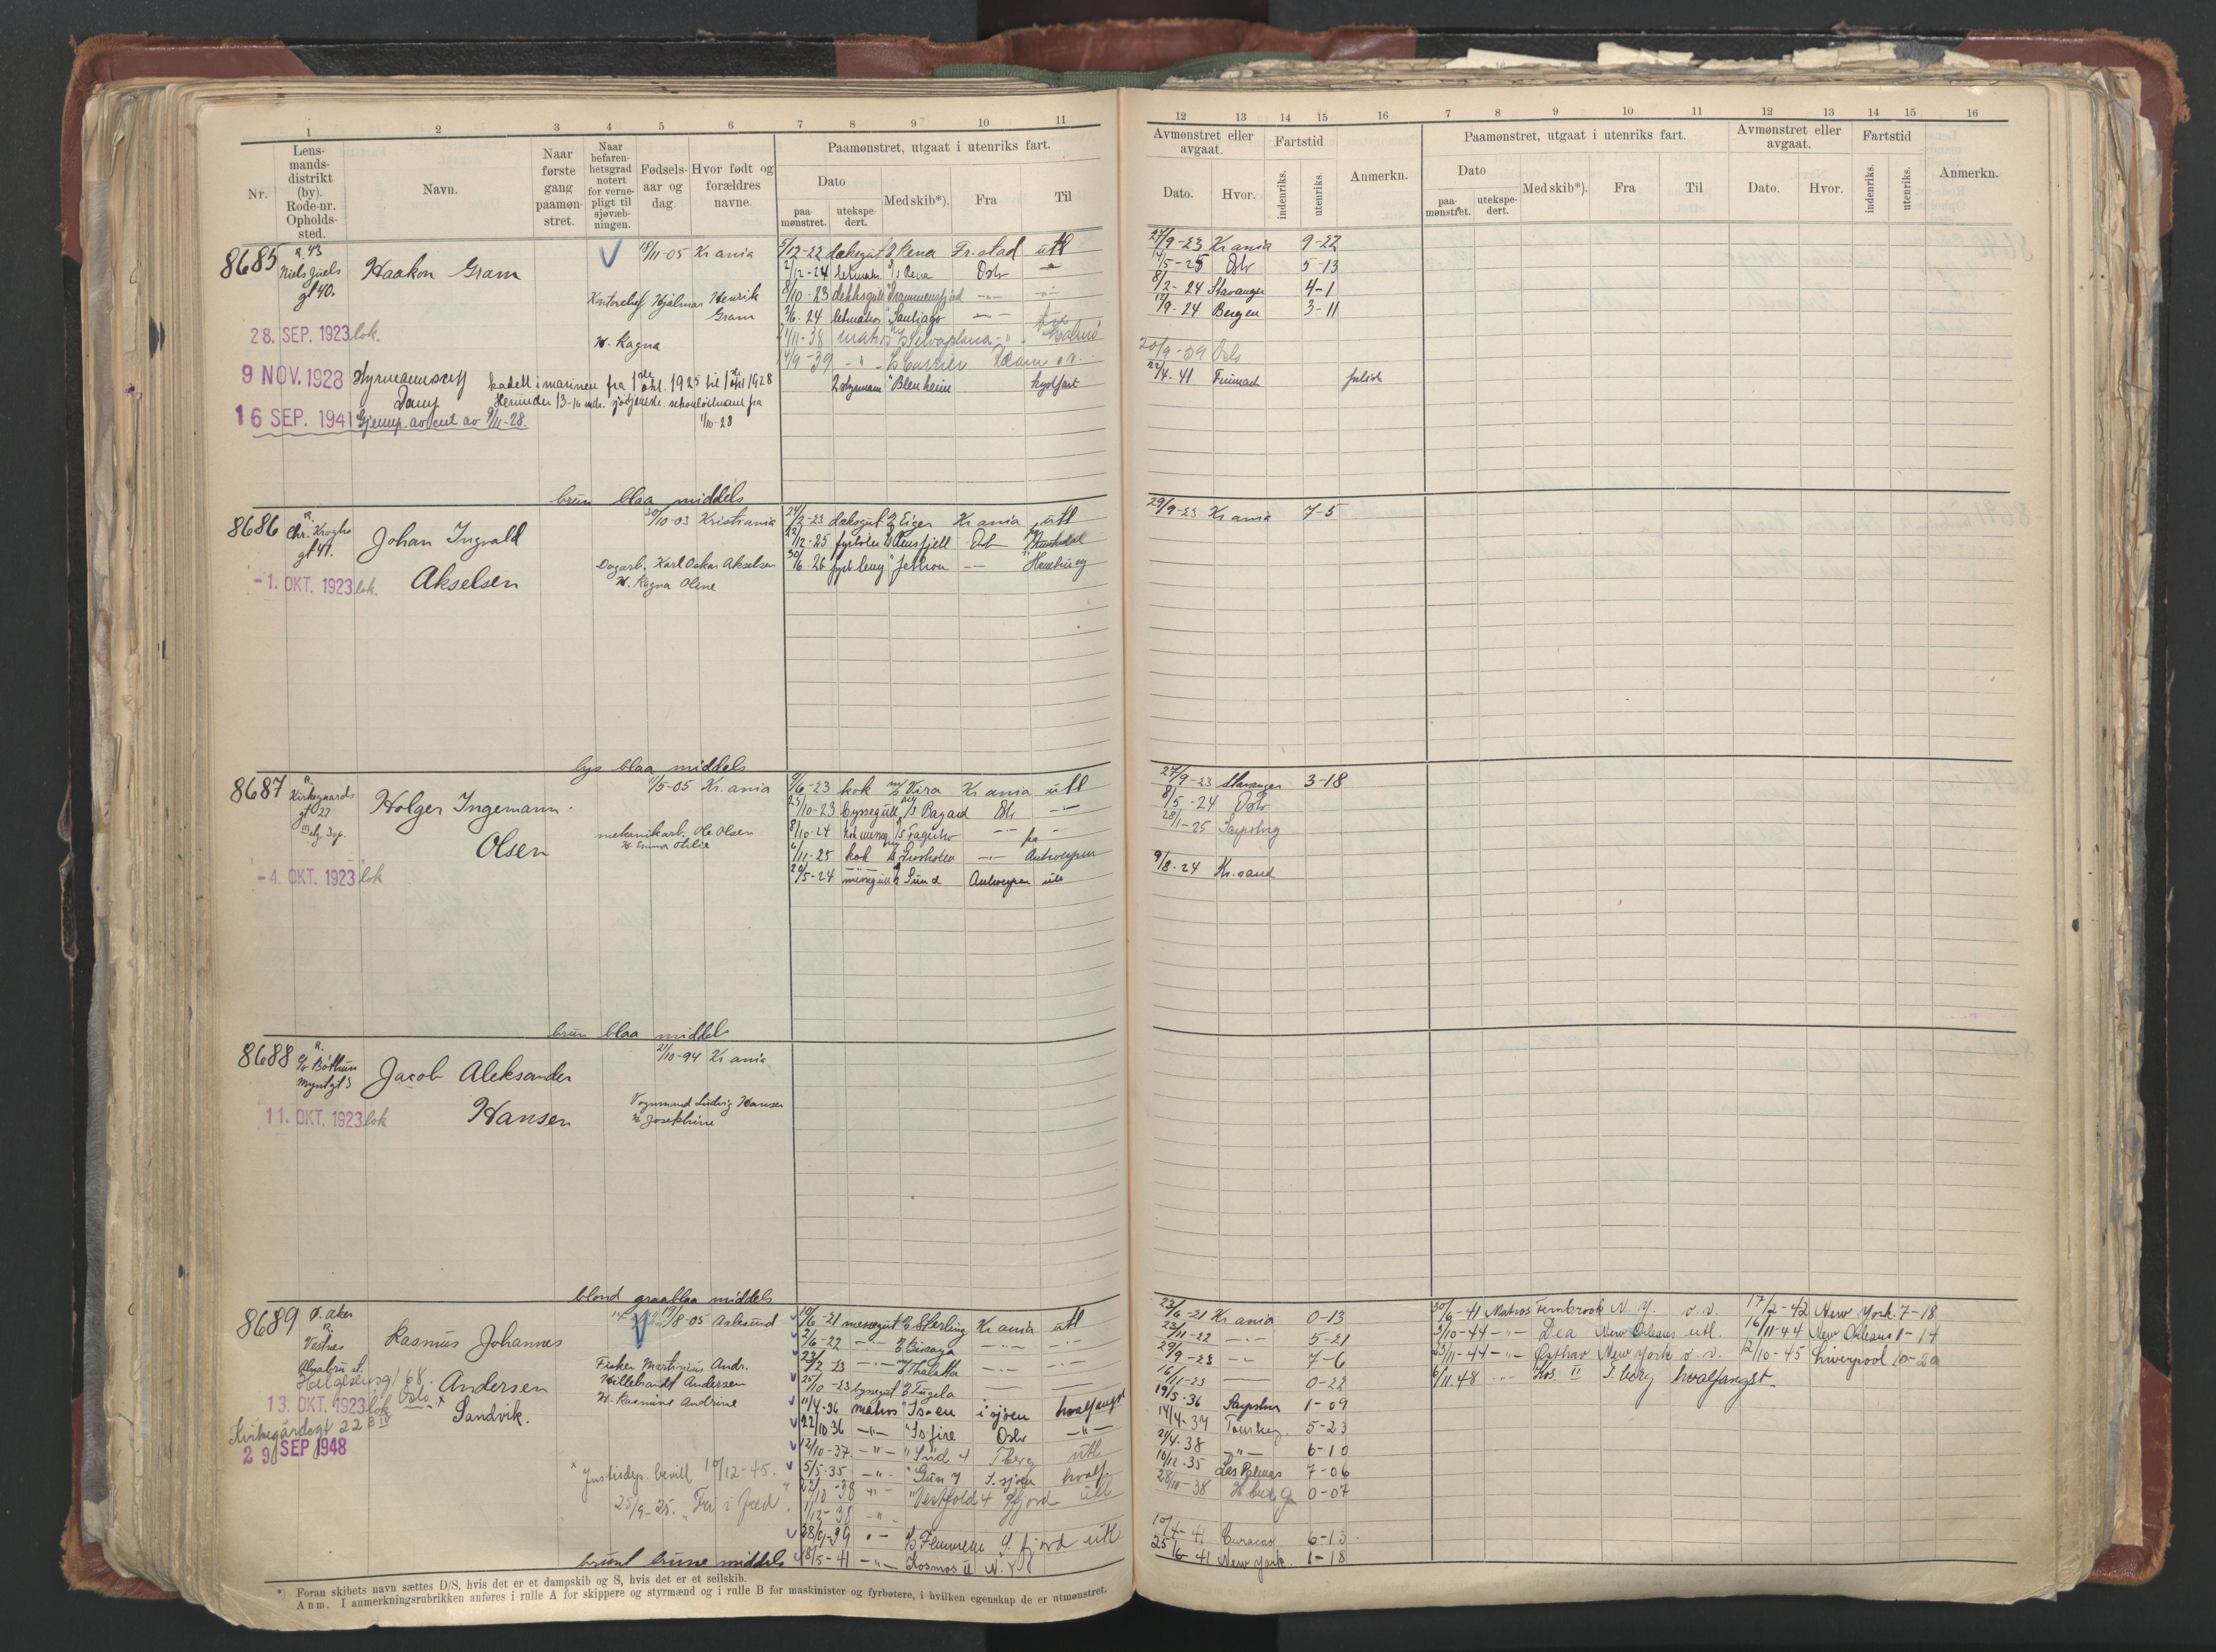 1 2 3 4 5 6 7 8 9 10 11
Nr.
Lens-
mands-
distrikt
(by).
Rode-nr.
Opholds-
sted.
Navn.
Naar
første
gang
paamøn-
stret.
Naar
befaren-
hetsgrad
notert
for verne-
pligt til
sjøvæb-
ningen.
Fødsels-
aar og
dag.
Hvor født og
forældres
navne.
Paamønstret, utgaat i utenriks fart.
Dato
paa-
mønstret.
utekspe-
dert.
Med skib*).
Fra
Til
8685 R. 43
Niels Juels
gt 40.
Haakon Gram
18/11-05 Kr ania
Hjalmar Henrik
Gram
H. Ragna
28. SEP. 1923 lok.
9 NOV. 1928
kadett i marinen fra 1ste okt. 1925 til 1ste okt 1928
16 SEP. 1941
av 9/11-28.
1/10-28
5/12-22 dæksgut Rena Fr.stad utl
2/12-24 letmatr. Rena Oslo
8/10-23 dekksgutt Drammensfjord
3/6-24 letmatros Santiago
21/11-38 matros Silvaplana
14/9-39
2 styrmann Blenheim kystfart
brun blaa middels
8686 R.
Chr. Kroghs
gt 41.
Johan Ingvald
Akselsen
30/10-03 Kristiania
Karl Oskar Akselsen
H. Ragna Oline
-1. OKT. 1923 lok.
24/2-23 dæksgut Eiger Kr ania utl
22/12-25 fyrbøter Rensfjell Oslo
30/6-26 Hamburg
lys blaa middels
8687 R.
Kirkegaards
gt 22
Holger Ingemann
Olsen
11/5-05 Kr. ania
mekanikarb. Ole Olsen
H Emma Otilie
-4. OKT. 1923 lok
9/6-23 kok Vira Kr ania utl
25/10-23 byssegutt Bagard Oslo
8/10-24
6/11-25 kok Antwerpen
29/5-24 messegutt Sund Antwerpen utl
brun blaa middels
8688 R.
c/o Bøthun
Myntgt 3
Jacob Aleksander
Hansen
21/10-94 Kr ania
Vognmand Ludvig Hansen
H Josephine
11. OKT. 1923 lok
blond graablaa middels
8689 Ø. Aker
R.
Vestnes
Rasmus Johannes
Andersen
Sandvik.
19/8-05 Aalesund
Fisker Martinius Andr.
Hillebrandt Andersen
H. Rasmine Andrine
Alnabru st.
Helgesensgt 68.
Oslo
13. OKT. 1923 lok
Kirkegårdsgt 22 B IV
29 SEP 1948
x Justisdep. bevill 10/12-45.
25/9-25. "Fri i fred".
10/6-21 messegut Sterling Kr ania utl
2/6-22 Biscaya
23/2-23 Thalatta
25/10-23 byssegut Tugela
11/4-36 matros i sjøen hvalfangst
22/10-36 Oslo
12/10-37 Tberg utl
5/5-35 i sjøen hvalf
22/10-38 Vestfold utl
1/12-38
28/9-39 S. fjord utl
18/5-41 Kosmos II N.Y.
brunt brune middels
*) Foran skibets navn sættes D/S, hvis det er et dampskib og S, hvis det er et seilskib.
Anm. I anmerkningsrubrikken anføres i rulle A for skippere og styrmænd og i rulle B for maskinister og fyrbøtere, i hvilken egenskap de er utmønstret.
12 13 14 15 16 7 8 9 10 11 12 13 14 15 16
Avmønstret eller
avgaat.
Dato. Hvor.
Fartstid
indenriks.
utenriks.
Anmerkn.
Paamønstret, utgaat i utenriks fart.
Dato
paa-
mønstret.
utekspe-
dert.
Med skib*).
Fra
Til
Avmønstret eller
avgaat.
Dato. Hvor.
Fartstid
indenriks.
utenriks.
Anmerkn.
27/9-23 Kr ania 9-22
14/5-25 Oslo 5-13
8/2-24 Stavanger 4-1
12/9-24 Bergen 3-11
20/9-39 Oslo
22/4-41
29/9-23 Kr ania 7-5
27/9-23 Stavanger 3-18
8/5-24 Oslo
28/1-25 Sarpsborg
9/8-24 Kr.sand
23/6-21 Kr ania 0-13
23/11-22 5-21
29/9-23 7-6
16/11-23 0-22
19/5-36 1-09
14/4-37 5-23
21/4-38 6-10
10/12-35 Las Palmas 7-06
28/10-38 H burg 0-07
10/4-41 Curacao 6-13
25/6-41 New York 1-18
30/6-41 Matros Fernbrook N.Y. v.v. 17/2-42 New York 7-18
3/10-44 Dea New Orleans utl. 16/11-44 New Orleans 1-14
23/11-44 Østhav New York v.v. 12/10-45 Liverpool 10-20
6/11.48 Kos II T. berg hvalfangst